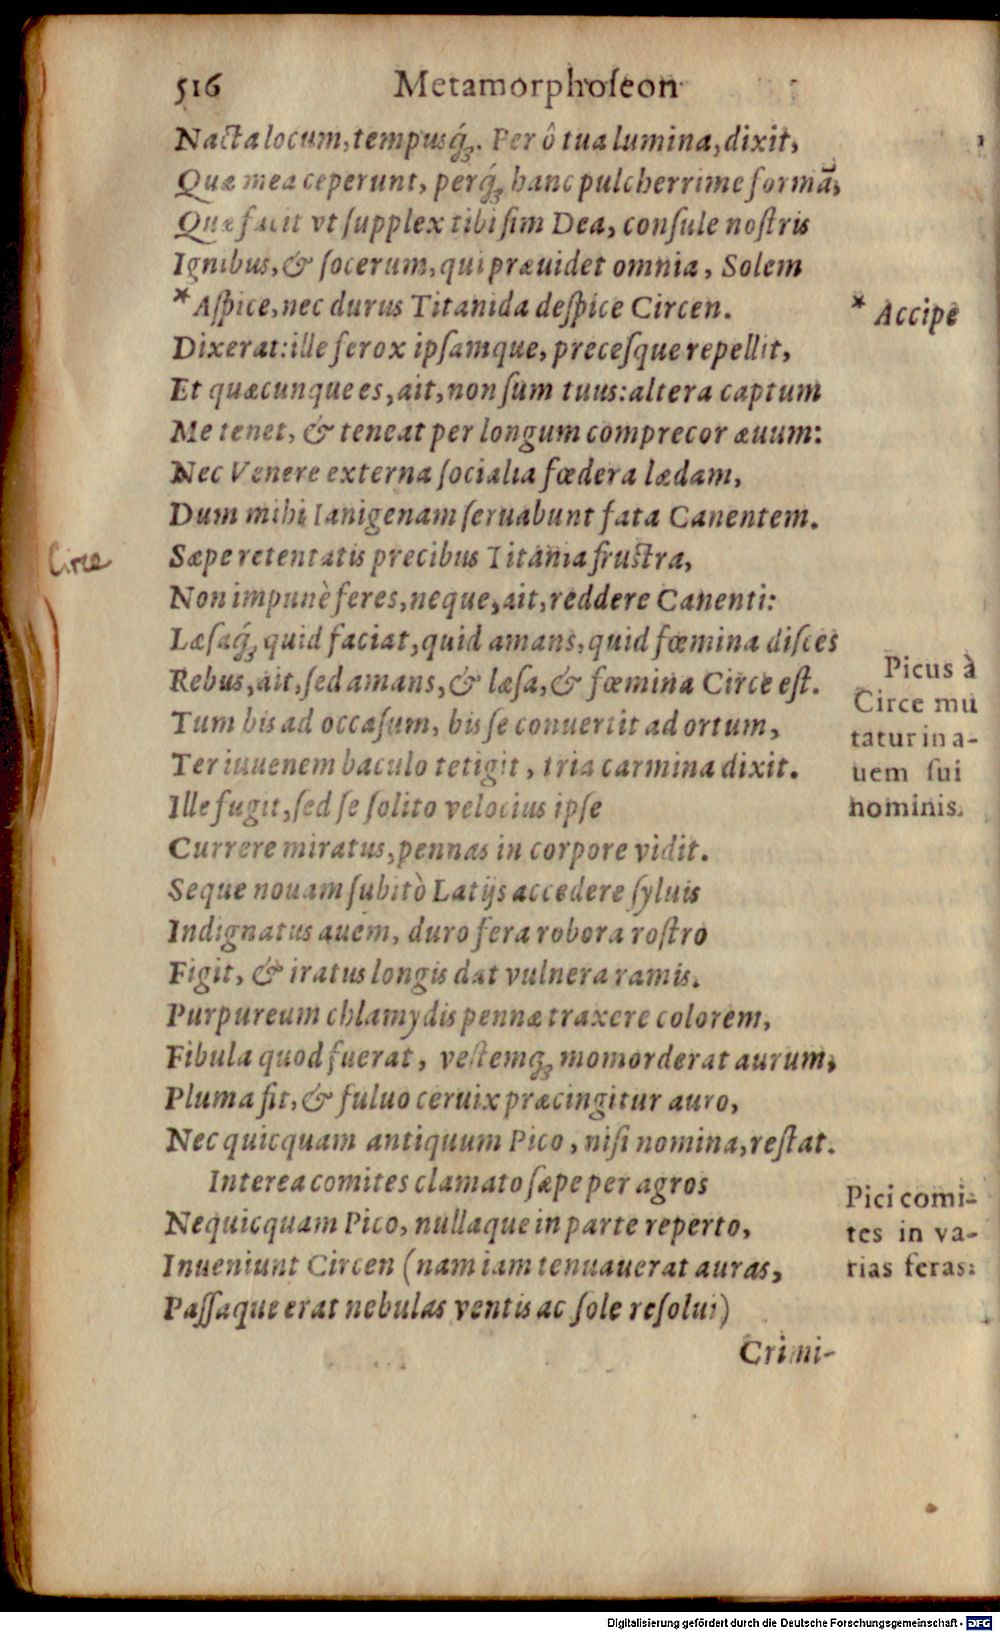 516 Metamorphoſeon
Nacta locum, tempusq́ꝫ. Per ô tua lumina, dixit,
Quæ mea ceperunt, perq́ꝫ hanc pulcherrime formã,
Quæ facit vt ſupplex tibi ſim Dea, conſule noſtris
Ignibus, & ſocerum, qui præuidet omnia, Solem
*Aſpice, nec durus Titanida deſpice Circen.
* Accipe
Dixerat: ille ferox ipſamque, preceſque repellit,
Et quæcunque es, ait, non ſum tuus: altera captum
Me tenet, & teneat per longum comprecor æuum:
Nec Venere externa ſocialia fœdera lædam,
Dum mihi Ianigenam ſeruabunt fata Canentem.
Circe
Sæpe retentatis precibus Titania fruſtra,
Non impunè feres, neque, ait, reddere Canenti:
Læſaq́ꝫ quid faciat, quid amans, quid fœmina diſces
Rebus, ait, ſed amans, & læſa, & fœmina Circe eſt.
Tum bis ad occaſum, bis ſe conuertit ad ortum,
Ter iuuenem baculo tetigit, tria carmina dixit.
Ille fugit, ſed ſe ſolito velocius ipſe
Currere miratus, pennas in corpore vidit.
Picus à
Circe mu
tatur in a-
uem ſui
nominis.
Seque nouam ſubitò Latijs accedere ſyluis
Indignatus auem, duro fera robora roſtro
Figit, & iratus longis dat vulnera ramis.
Purpureum chlamydis pennæ traxere colorem,
Fibula quod fuerat, veſtemqꝫ momorderat aurum,
Pluma fit, & fuluo ceruix præcingitur auro,
Nec quicquam antiquum Pico, niſi nomina, reſtat.
Interea comites clamato ſæpe per agros
Nequicquam Pico, nullaque in parte reperto,
Inueniunt Circen (nam iam tenuauerat auras,
Paſſaque erat nebulas ventis ac ſole reſolui)
Pici comi-
tes in va-
rias feras.
Crimi-
Digitalisierung gefördert durch die Deutsche Forschungsgemeinschaft - DFG